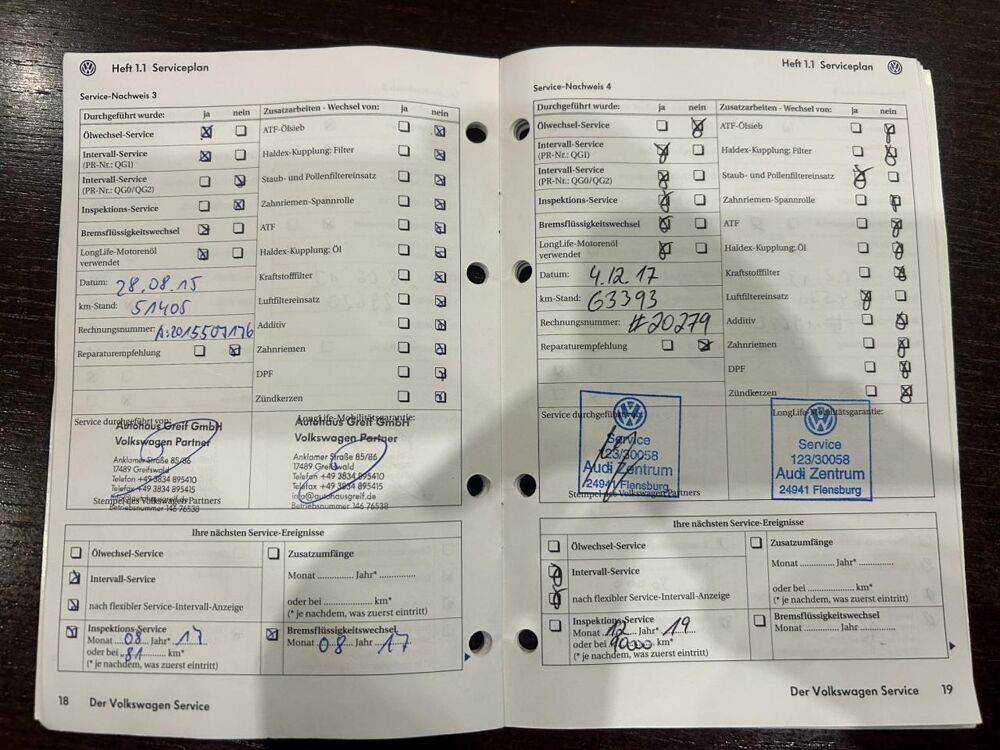 Heft 1.1 Serviceplan
Service-Nachweis 3
Durchgeführt wurde: ja nein
Ölwechsel-Service
Intervall-Service
(PR-Nr.: QG1)
Intervall-Service
(PR-Nr.: QG0/QG2)
Inspektions-Service
Bremsflüssigkeitswechsel
LongLife-Motorenöl
verwendet
Datum: 28.08.15
km-Stand: 51405
Rechnungsnummer: A:2015507176
Reparaturempfehlung
Zusatzarbeiten - Wechsel von: ja nein
ATF-Ölsieb
Haldex-Kupplung: Filter
Staub- und Pollenfiltereinsatz
Zahnriemen-Spannrolle
ATF
Haldex-Kupplung: Öl
Kraftstofffilter
Luftfiltereinsatz
Additiv
Zahnriemen
DPF
Zündkerzen
Service durchgeführt von:
Autohaus Greif GmbH
Volkswagen Partner
Anklamer Straße 85/86
17489 Greifswald
Telefon +49 3834 895410
Telefax +49 3834 895415
Stempel des Volkswagen Partners
Betriebsnummer 146 76538
LongLife-Mobilitätsgarantie:
Autohaus Greif GmbH
Volkswagen Partner
Anklamer Straße 85/86
17489 Greifswald
Telefon +49 3834 895410
Telefax +49 3834 895415
info@autohausgreif.de
Betriebsnummer 146 76538
Ihre nächsten Service-Ereignisse
Ölwechsel-Service
Intervall-Service
nach flexibler Service-Intervall-Anzeige
Inspektions-Service
Monat 08 Jahr* 17
oder bei 81 km*
(* je nachdem, was zuerst eintritt)
Zusatzumfänge
Monat .............. Jahr* ..............
oder bei ...................... km*
(* je nachdem, was zuerst eintritt)
Bremsflüssigkeitswechsel
Monat 08 Jahr 17
18 Der Volkswagen Service
Heft 1.1 Serviceplan
Service-Nachweis 4
Durchgeführt wurde: ja nein
Ölwechsel-Service
Intervall-Service
(PR-Nr.: QG1)
Intervall-Service
(PR-Nr.: QG0/QG2)
Inspektions-Service
Bremsflüssigkeitswechsel
LongLife-Motorenöl
verwendet
Datum: 4.12.17
km-Stand: 63393
Rechnungsnummer: #20279
Reparaturempfehlung
Zusatzarbeiten - Wechsel von: ja nein
ATF-Ölsieb
Haldex-Kupplung: Filter
Staub- und Pollenfiltereinsatz
Zahnriemen-Spannrolle
ATF
Haldex-Kupplung: Öl
Kraftstofffilter
Luftfiltereinsatz
Additiv
Zahnriemen
DPF
Zündkerzen
Service durchgeführt von:
Service
123/30058
Audi Zentrum
24941 Flensburg
Stempel des Volkswagen Partners
LongLife-Mobilitätsgarantie:
Service
123/30058
Audi Zentrum
24941 Flensburg
Ihre nächsten Service-Ereignisse
Ölwechsel-Service
Intervall-Service
nach flexibler Service-Intervall-Anzeige
Inspektions-Service
Monat 12 Jahr* 19
oder bei 90000 km*
(* je nachdem, was zuerst eintritt)
Zusatzumfänge
Monat .............. Jahr* ..............
oder bei ...................... km*
(* je nachdem, was zuerst eintritt)
Bremsflüssigkeitswechsel
Monat .............. Jahr ..............
Der Volkswagen Service 19